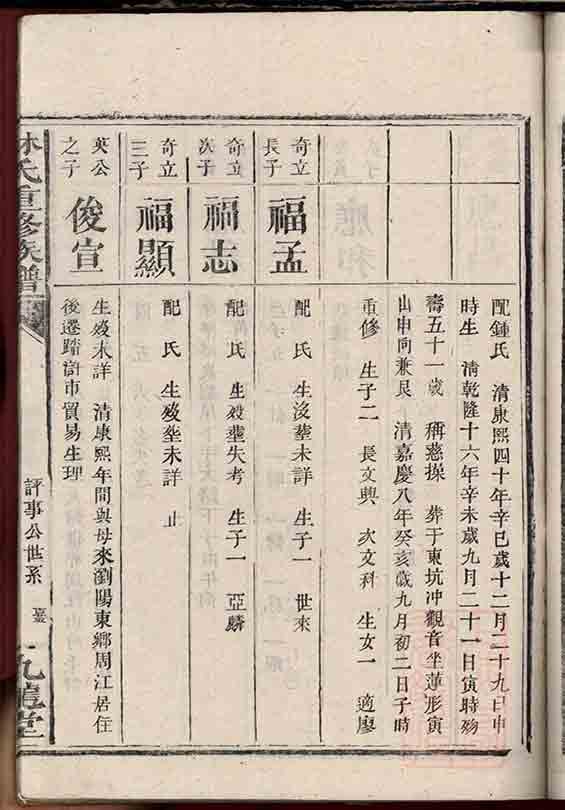 配鍾氏 清康熙四十年辛巳歲十二月二十九日申
時生 淸乾隆十六年辛未歲九月二十一日寅時殁
壽五十一歲 稱慈操 葬于東坑冲觀音坐蓮形寅
山申向兼艮 清嘉慶八年癸亥歲九月初二日子時
重修 生子二 長文興 次文科 生女一 適廖
奇立長子 福孟 配 氏 生没塟未詳 生子一 世來
奇立次子 福志 配 氏 生殁塟失考 生子一 亞麟
奇立三子 福顯 配 氏 生殁塟未詳 止
英公之子 俊宣 生殁未詳 清康熙年間與母來瀏陽東鄉周江居住
後遷踏滸市貿易生理
林氏重修族譜
評事公世系
九龍堂